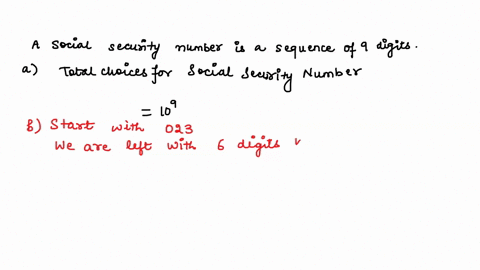 A Social security number is a sequence of 9 digits.
a) Total choices for Social Security Number
= 10⁹
b) Start with 023
We are left with 6 digits